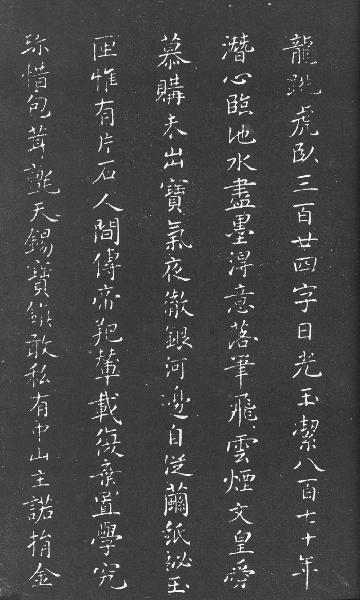 龍跳虎臥三百廿四字日光玉潔八百七十年
潛心臨池水盡墨得意落筆飛雲煙文皇爵
慕購未出寶氣夜徹銀河邊自從繭紙祕玉
匣惟有片石人間傳帝羓輦載復棄置學究
珎惜包茸氈天錫寶鎮敢私有中山主諾捐金